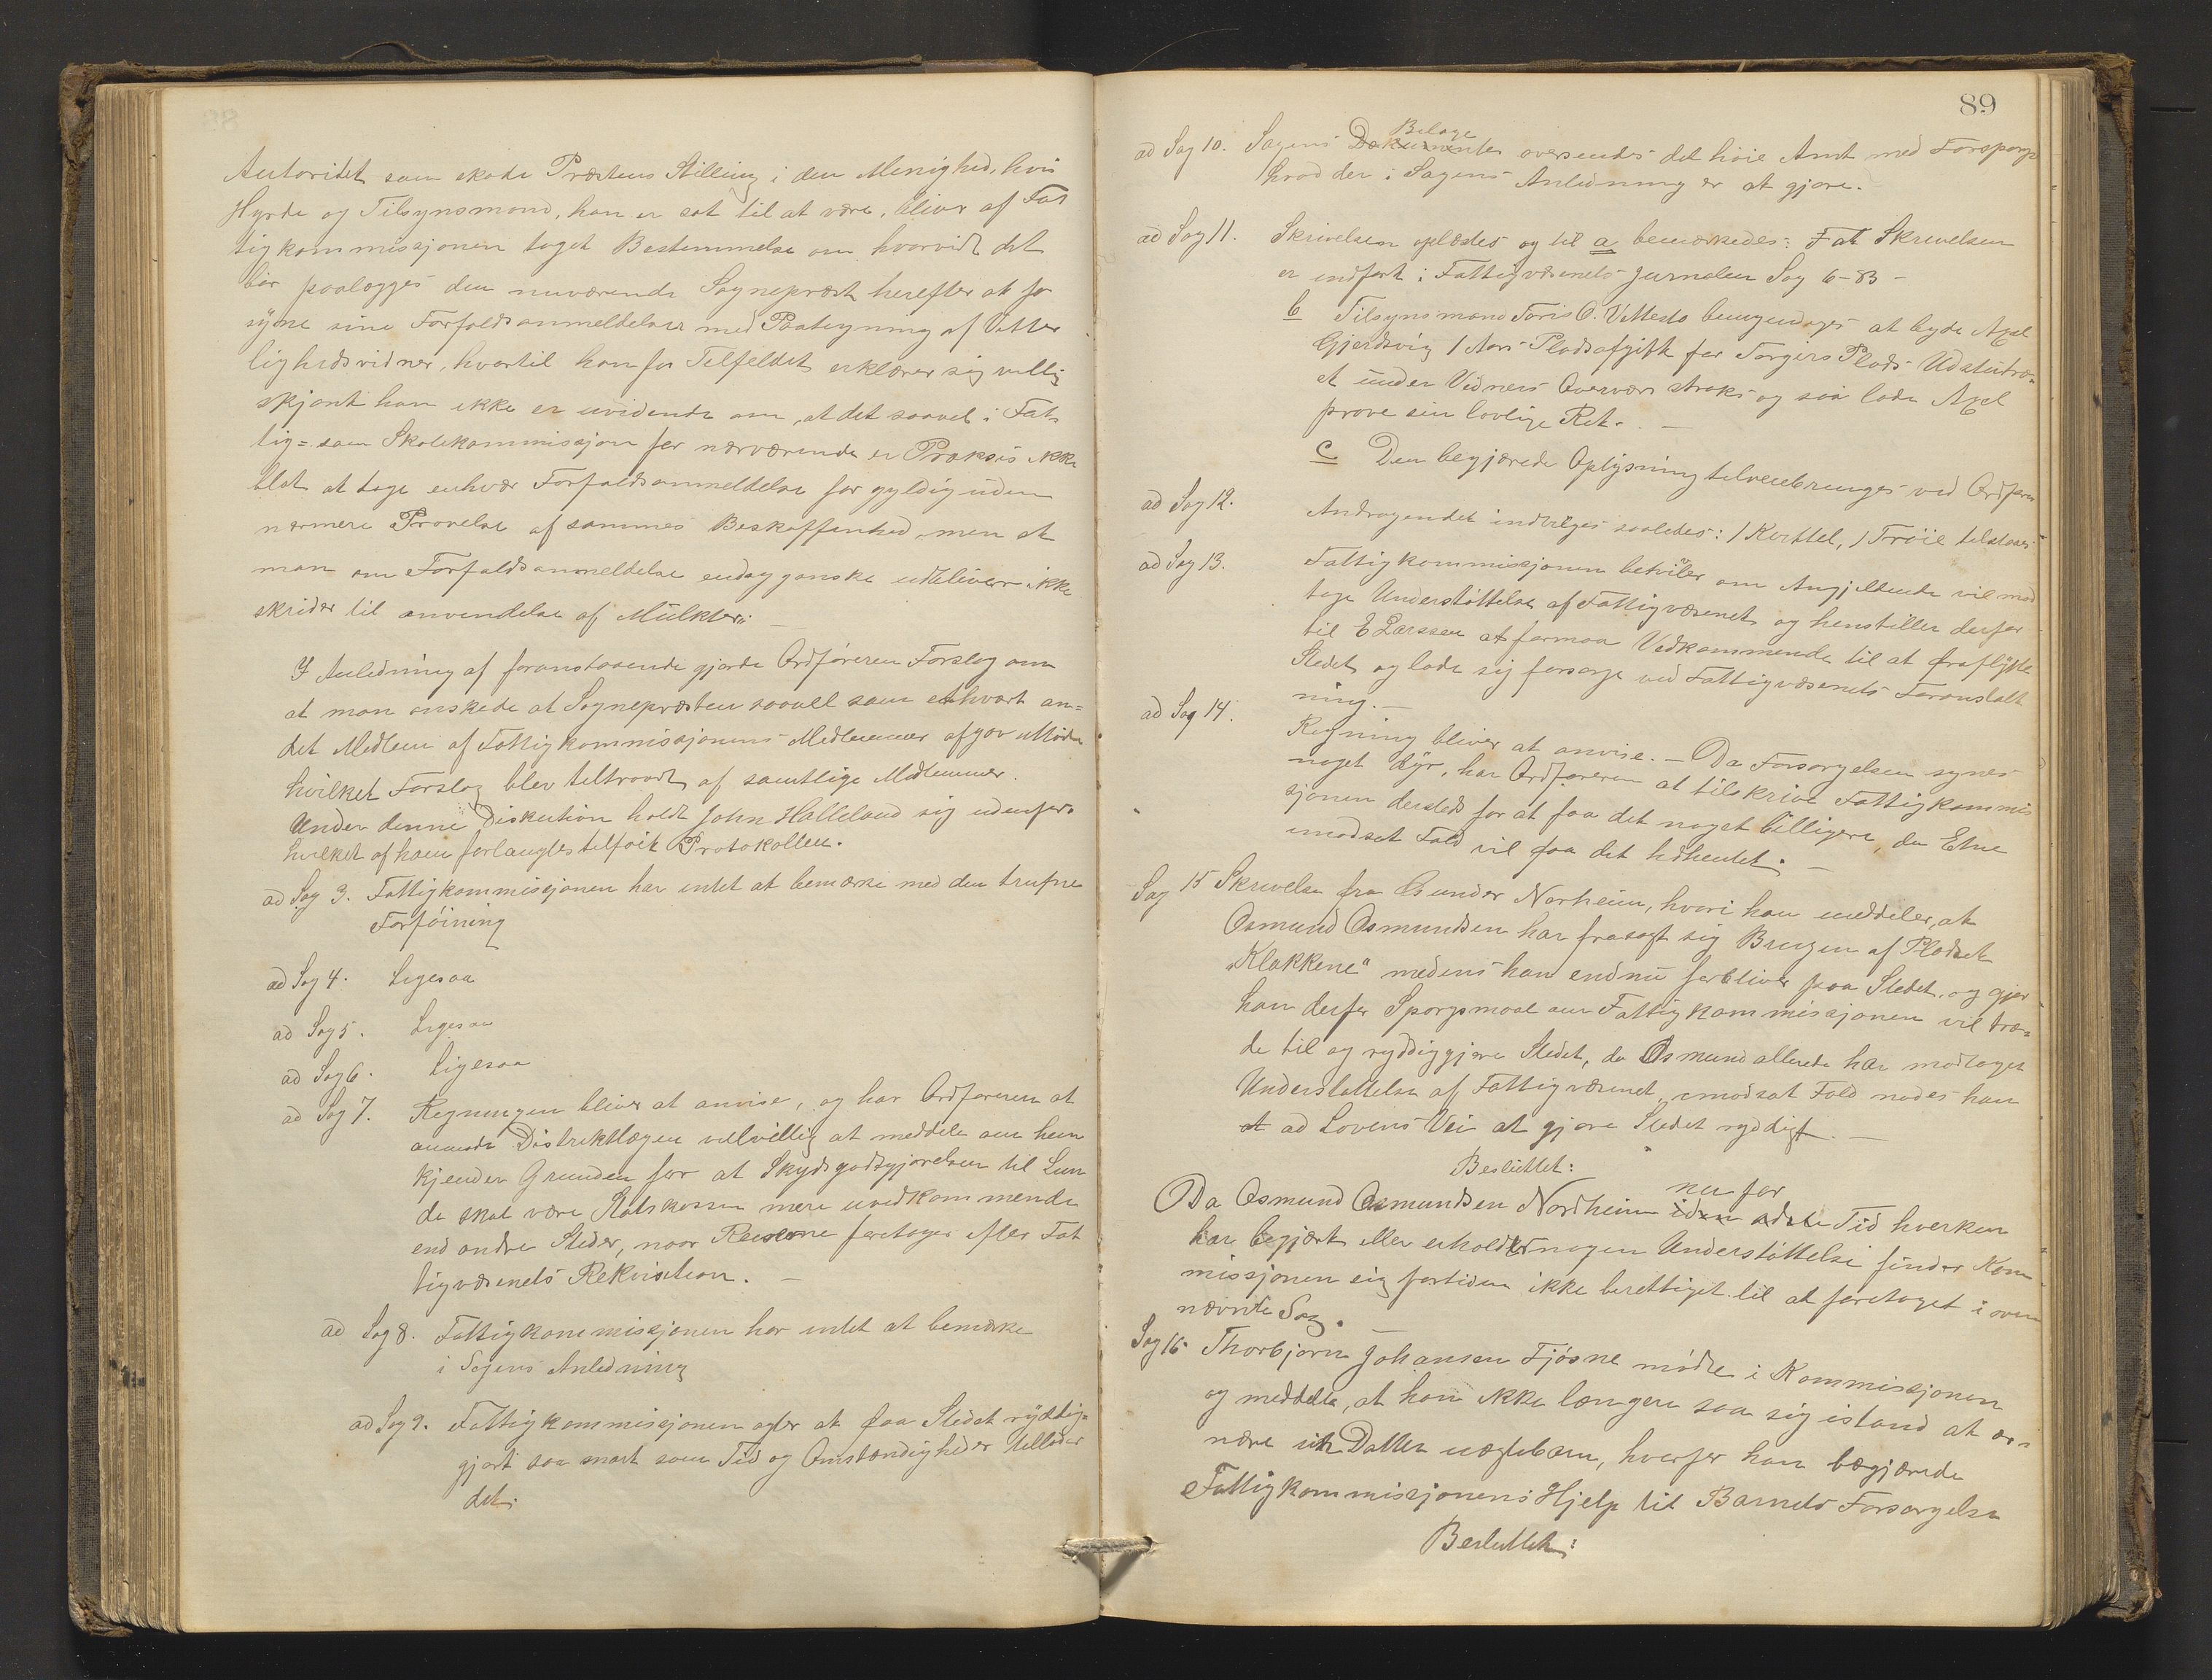 Autoritet som skade Præstens Stilling i den Menighed, hvis
Hyrde og Tilsynsmand, han er sat til at være, bliver af Fat
tigkommissjonen taget Bestemmelse om hvorvidt det
bør paalægges den nuværende Sogneprest herefter at for
syne sine Forfaldsanmeldelser med Paategning af Vitter
lighedsvidner, hvortil han for Tilfældet erklærer sig villig
skjønt han ikke er uvidende om, at det saavel i Fat
tig= som Skolekommissjon før nærværende er Praksis ikke
blot at tage enhver Forfaldsanmeldelse for gyldig uden
nærmere Prøvelse af sammes Beskaffenhed, men at
man om Forfaldsanmeldelse endog ganske udebliver ikke
skrider til anvendelse af Mulkter." —
I Anledning af foranstaaende gjorde Ordføreren Forslag om
at man ønskede at Sognepræsten saavel som ethvert an=
det Medlem af Fattigkommissjonens Medlemmer afgav Møde
hvilket Forslag blev tiltraadt af samtlige Medlemmer.
Under denne Diskution holdt John Halleland sig udenfor
hvilket af ham forlangtes tilføiet Protokollen.
ad Sag 3. Fattigkommissjonen har intet at bemærke med den trufne
Forføining
ad Sag 4. Ligesaa
ad Sag 5. Ligesaa
ad Sag 6. Ligesaa
ad Sag 7. Regningen bliver at anvise, og har Ordføreren at
anmode Distriktlægen velvillig at meddele om han
kjender Grunden for at Skydsgodtgjørelsen til Lun
de skal være Statskassen mere uvedkommende
end andre Steder, naar Reiserne foretages efter Fat
tigvæsenets Rekvisition. —
ad Sag 8. Fattigkommissjonen har intet at bemærke
i Sagens Anledning
ad Sag 9. Fattigkommissjonen agter at faa Stedet ryddig=
gjort saa snart som Tid og Omstændigheder tillader
det.
89
ad Sag 10. Sagens Dokumenter Bilage oversendes det høie Amt med Forspørg
hvad der i Sagens Anledning er at gjøre.
ad Sag 11. Skrivelsen oplæstes og til a bemærkedes: at Skrivelsen
er indført i Fattigvæsenets Jurnalen Sag 6-83 -
b Tilsynsmand Toris O. Vettestø bemyndiges at byde Axel
Gjerdsvig 1 Aars Pladsafgift for Torgers Plads Udstutræ=
et under Vidners Overvær straks og saa lade Axel
prøve sin lovlige Ret. —
c Den begjærede Oplysning tilveiebringes ved Ordføren
ad Sag 12. Andragendet indvilges saaledes: 1 Kvittel, 1 Trøie tilstaaes
ad Sag 13. Fattigkommissjonen betviler om Angjeldende vil mod
tage Understøttelse af Fattigvæsenet, og henstiller derfor
til E Larssen at formaa Vedkommende til at fraflytte
Stedet og lade sig forsørge ved Fattigvæsenets Foranstalt
ning. —
ad Sag 14. Regning bliver at anvise. — Da Forsørgelsen synes
noget dyr, har Ordføreren at tilskrive Fattigkommis
sjonen dersteds for at faa det noget billigere, da Etne
imodsat Fald vil faa det hidhentet. —
Sag 15 Skrivelse fra Gunder Norheim, hvori han meddeler, at
Osmund Osmundsen har frasagt sig Brugen af Pladset
„Klakkene" medens han endnu forbliver paa Stedet, og gjør
han derfor Spørgsmaal om Fattigkommissjonen vil træ=
de til og ryddiggjøre Stedet, da Osmund allerede har modtaget
Understøttelse af Fattigvæsenet, imodsat Fald nødes han
at ad Lovens Vei at gjøre Stedet ryddigt. —
Besluttet:
Da Osmund Osmundsen Nordheim nu for Tid hverken
har begjært eller erholdt nogen Understøttelse finder Kom=
missjonen sig fortiden ikke berettiget til at foretaget i oven
nævnte Sag. —
Sag 16. Thorbjørn Johansen Fjøsne mødte i Kommissjonen
og meddelte, at han ikke længere saa sig istand at er=
nære sin Datter uægtebarn, hvorfor han begjærede
Fattigkommissjonens Hjelp til Barnets Forsørgelse
Besluttet: